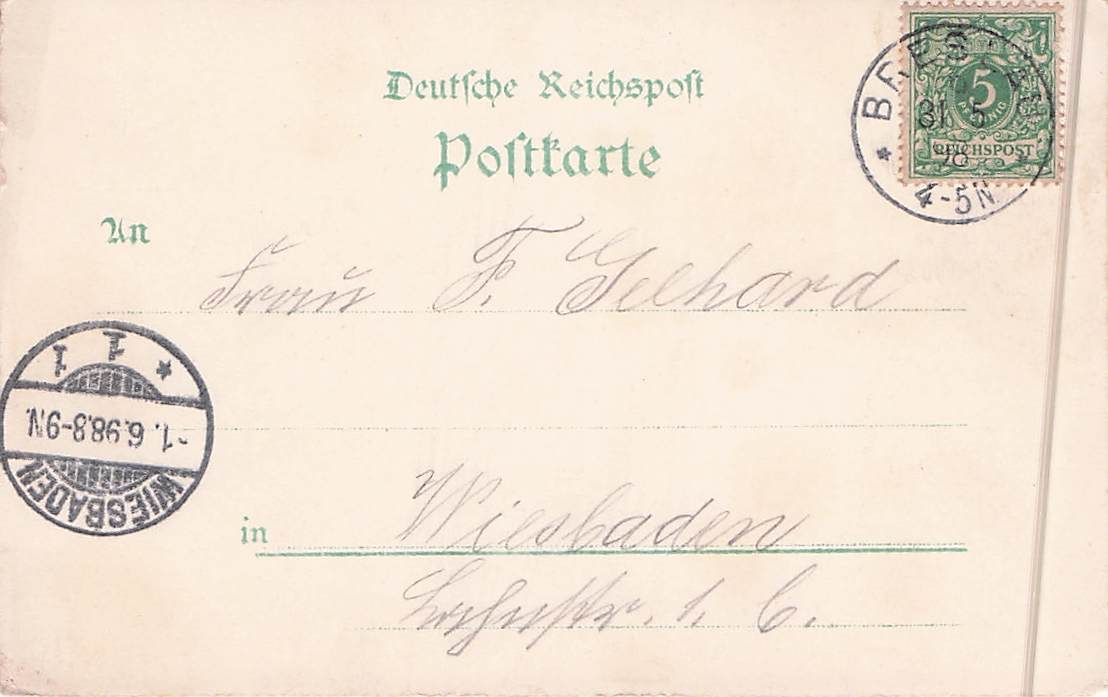 Deutsche Reichspost
Postkarte
BRESLAU
31. 5
98
4-5N
5
PFENNIG
REICHSPOST
An
Frau F. Gelhard
1 1
-1. 6.98.8-9N.
WIESBADEN
in Wiesbaden
1. C.